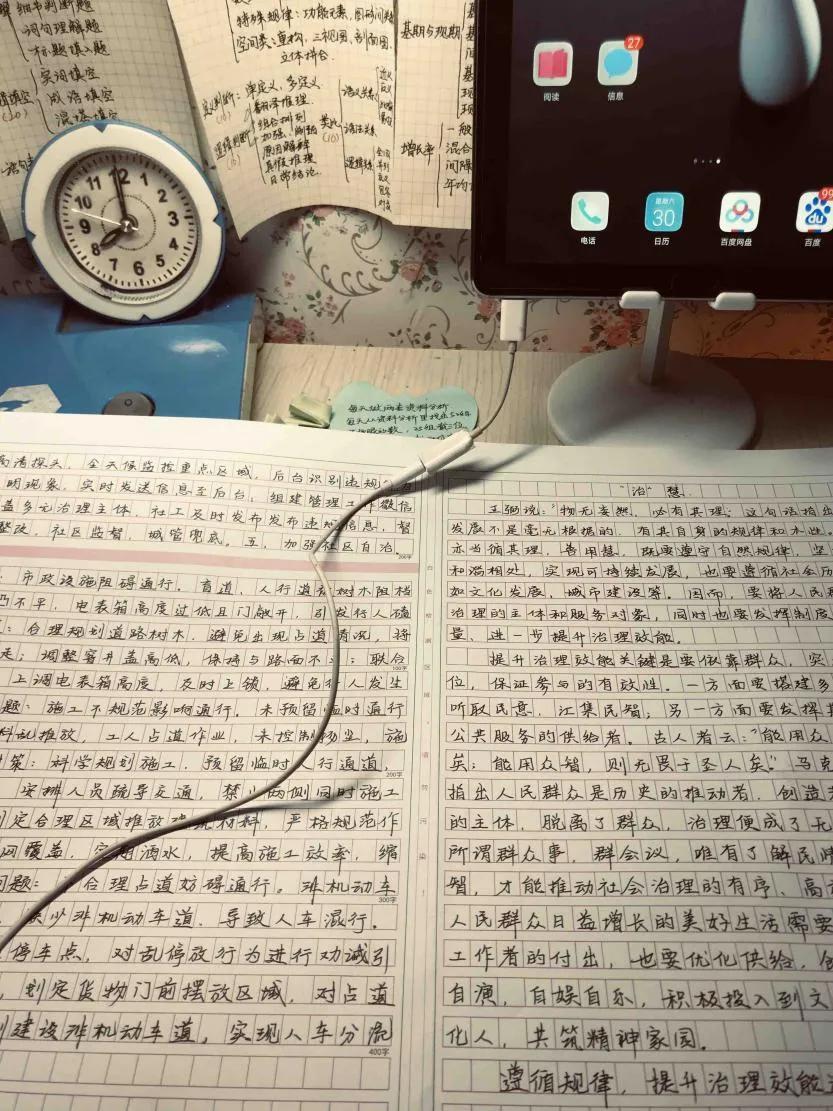 细节判断题
词句理解题
标题填入题
实词填空
成语填空
混搭填空
特殊规律：功能元素、图形间数
空间类：重构、三视图、剖面图、
立体拼合
定义判断：单定义、多定义
(10)
翻译推理
组合排列
加强、削弱
原因解释
真假推理
日常结论
逻辑判断
类比
(10)
语义关系
语法关系
逻辑关系
基期与现期
增长率
一般
混合
间隔
年均
阅读
27
信息
电话
星期六
30
日历
百度网盘
99
du
百度
11 12 1 2 3 4 5 6 7 8 9 10
每天做两套资料分析
高清探头，全天候监控重点区域，后台识别违规
明现象，实时发送信息至后台；组建管理工作微信
多元治理主体，社工及时发布发布违规信息，督
整改，社区监督，城管兜底。五、加强社区自治。
200字
：市政设施阻碍通行。盲道、人行道有树木阻挡
凹不平，电表箱高度过低且门敞开，引发行人
：合理规划道路树木，避免出现占道情况，将
走；调整窨井盖高低，保持与路面不；联合
100字
上调电表箱高度，及时上锁，避免行人发生
题：施工不规范影响通行。未预留临时通行
料乱堆放，工人占道作业，未控制扬尘，施
策：科学规划施工，预留临时人行通道，
200字
安排人员疏导交通，禁止两侧同时施工
划定合理区域堆放建筑材料，严格规范作
网覆盖，定期洒水，提高施工效率，缩
问题：不合理占道妨碍通行。非机动车
300字
缺少非机动车道，导致人车混行。
停车点，对乱停放行为进行劝诫引
，划定货物门前摆放区域，对占道
建设非机动车道，实现人车分流
400字
“治”慧
王弼说：“物无妄然，必有其理。”这句话指出
发展不是毫无根据的，有其自身的规律和本性。
亦当循其理，善用慧，既要遵守自然规律，坚
和谐相处，实现可持续发展，也要遵循社会历
如文化发展，城市建设等。因而，要将人民
治理的主体和服务对象，同时也要发挥制度
量，进一步提升治理效能。
提升治理效能关键是要依靠群众，突
位，保证参与的有效性。一方面要搭建多
听取民意，汇集民智；另一方面要发挥
公共服务的供给者。古人者云：“能用众
矣；能用众智，则无畏于圣人矣。”马克
指出人民群众是历史的推动者，创造者
的主体，脱离了群众，治理便成了无
所谓群众事，群会议，唯有了解民情
智，才能推动社会治理的有序、高
人民群众日益增长的美好生活需要
工作者的付出，也要优化供给，创
自演，自娱自乐，积极投入到文
化人，共筑精神家园。
遵循规律，提升治理效能